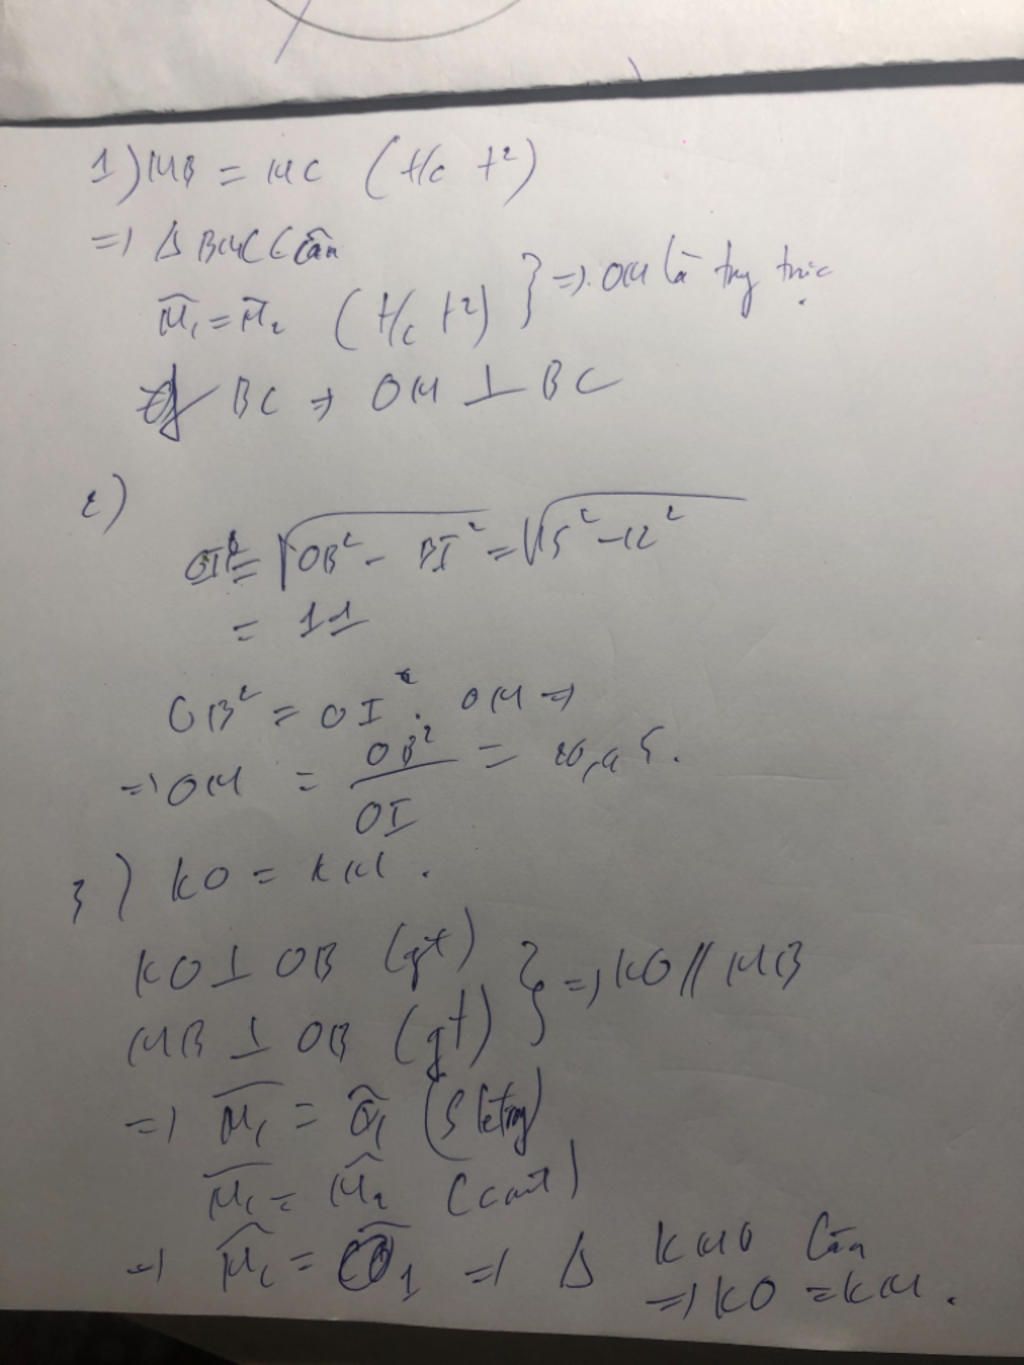 1) MB = MC (t/c t²)
=) Δ BMC cân
M̂₁ = M̂₂ (t/c t²) } =). OM là trung trực
BC => OM ⊥ BC
2)
OI = √OB² - BI² = √15² - 12²
= 11
OB² = OI . OM =)
=) OM = OB²/OI = 20,45.
3) KO = KM.
KO ⊥ OB (gt)
MB ⊥ OB (gt) } =) KO // MB
=) M̂₁ = Ô₁ (S le trong)
M̂₁ = M̂₂ (cmt)
=) M̂₂ = Ô₁ =) Δ KMO cân
=) KO = KM.